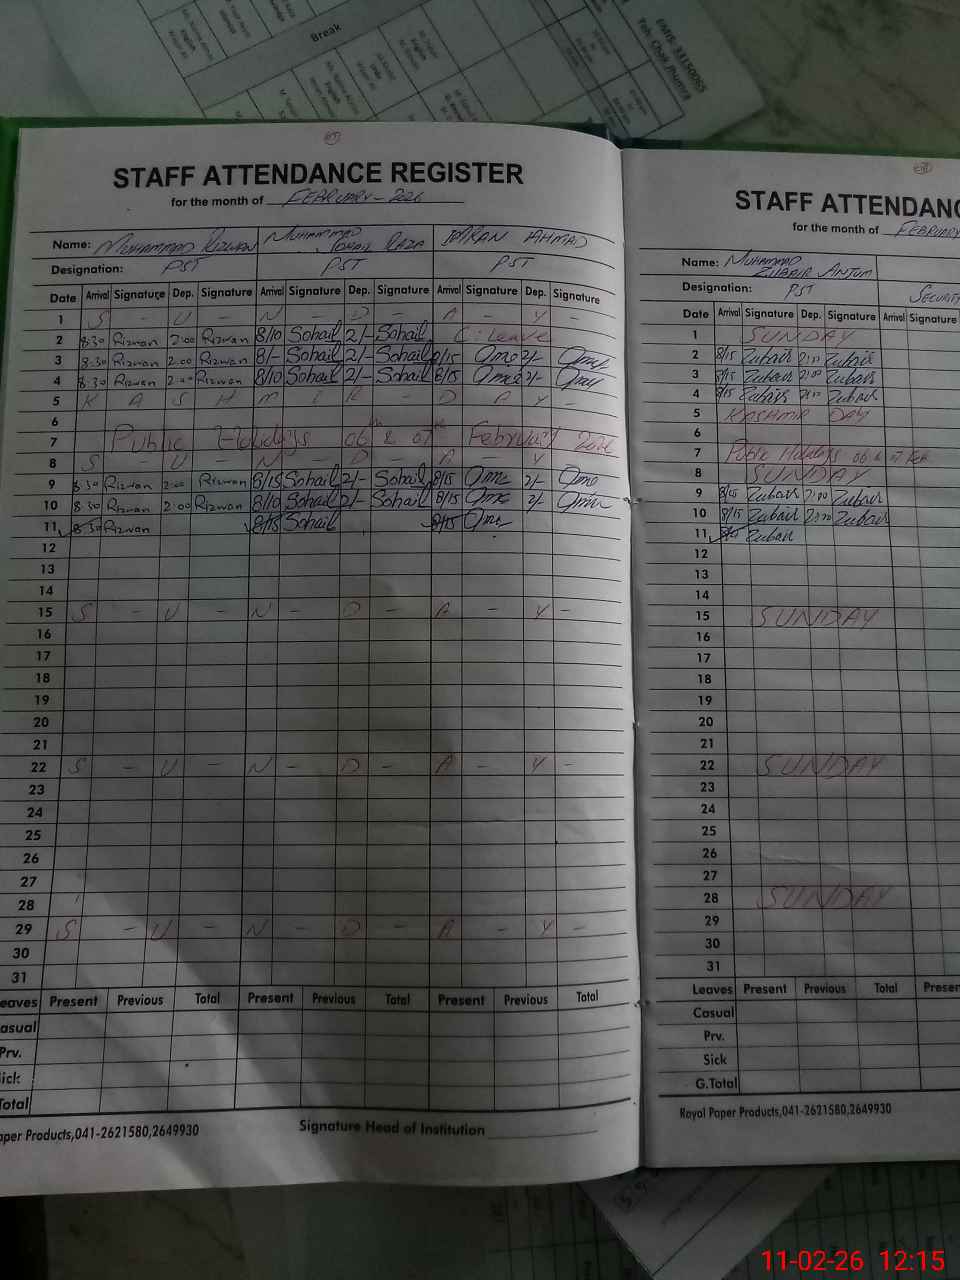 Break
EMIS: 33150065
Teh: Chak Jhumra
STAFF ATTENDANCE REGISTER
for the month of FEBRUARY-2026
Name: MUHAMMAD RIZWAN MUHAMMAD SOHAIL RAZA IMRAN AHMAD
Designation: PST PST PST
Date Arrival Signature Dep. Signature Arrival Signature Dep. Signature Arrival Signature Dep. Signature
1 S - U - N - D - A - Y
2 8:30 Rizwan 2:00 Rizwan 8/10 Sohail 2/- Sohail C. Leave
3 8:30 Rizwan 2:00 Rizwan 8/- Sohail 2/- Sohail 8/15 2/-
4 8:30 Rizwan 2:00 Rizwan 8/10 Sohail 2/- Sohail 8/15 2/-
5 K A S H M I R - D A Y -
6
7 Public Holidays 06th & 07th February 2026
8 S - U - N - D - A - Y -
9 8:30 Rizwan 2:00 Rizwan 8/15 Sohail 2/- Sohail 8/15 2/-
10 8:30 Rizwan 2:00 Rizwan 8/10 Sohail 2/- Sohail 8/15 2/-
11 8:30 Rizwan 8/15 Sohail 8/15
12
13
14
15 S - U - N - D - A - Y -
16
17
18
19
20
21
22 S - U - N - D - A - Y -
23
24
25
26
27
28
29 S - U - N - D - A - Y -
30
31
eaves Present Previous Total Present Previous Total Present Previous Total
asual
Prv.
ick
Total
aper Products,041-2621580,2649930
Signature Head of Institution
STAFF ATTENDANC
for the month of FEBRUARY
Name: MUHAMMAD ZUBAIR ANJUM
Designation: PST SECURITY
Date Arrival Signature Dep. Signature Arrival Signature
1 SUNDAY
2 8/15 Zubair 2:00 Zubair
3 8/15 Zubair 2:00 Zubair
4 8/15 Zubair 2:00 Zubair
5 KASHMIR DAY
6
7 Public Holidays 06 & 07 Feb
8 SUNDAY
9 8/15 Zubair 2:00 Zubair
10 8/15 Zubair 2:00 Zubair
11 Zubair
12
13
14
15 SUNDAY
16
17
18
19
20
21
22 SUNDAY
23
24
25
26
27
28 SUNDAY
29
30
31
Leaves Present Previous Total Presen
Casual
Prv.
Sick
G.Total
Royal Paper Products,041-2621580,2649930
11-02-26 12:15